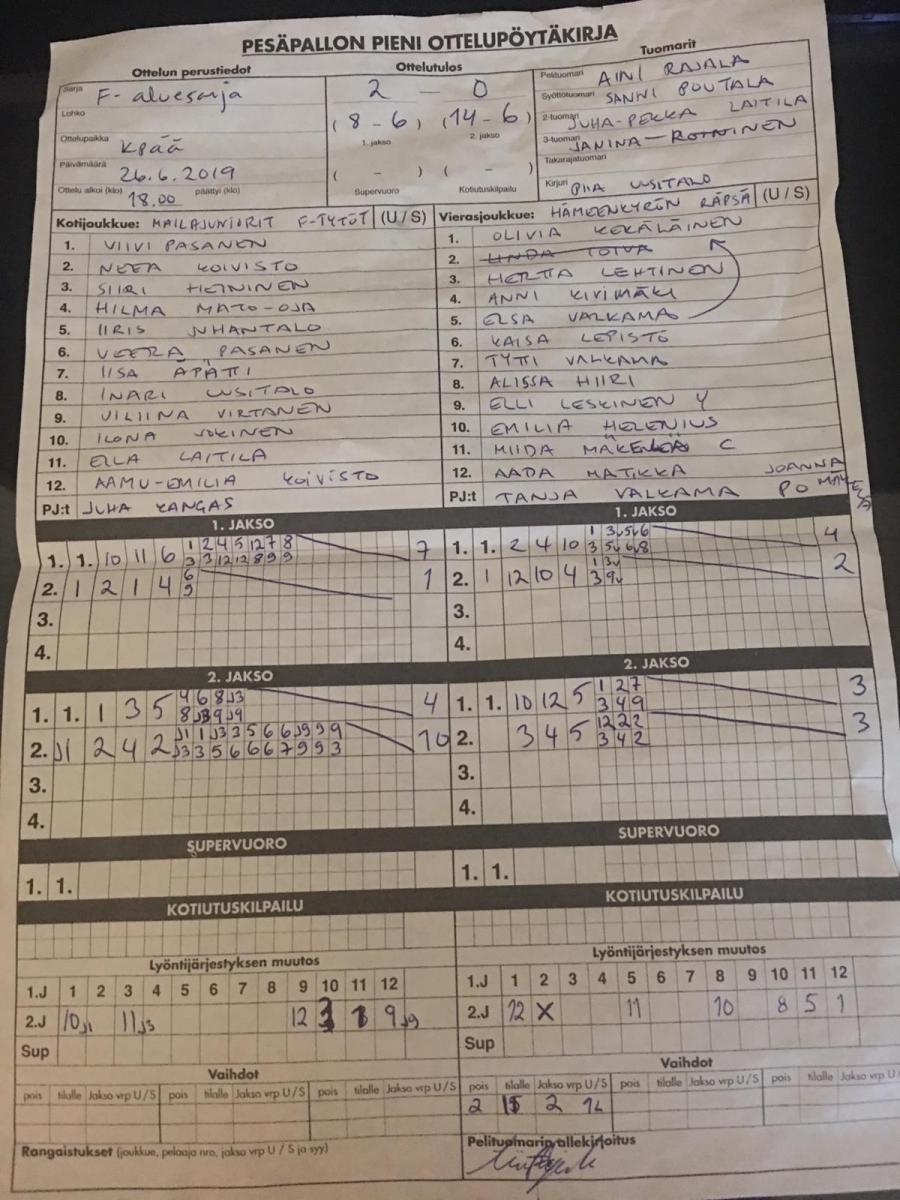 PESÄPALLON PIENI OTTELUPÖYTÄKIRJA
Ottelun perustiedot
Sarja F-aluesarja
Lohko
Ottelupaikka KPÄÄ
Päivämäärä 26.6.2019
Ottelu alkoi (klo) 18.00 päättyi (klo)
Ottelutulos
2 - 0
(8-6) (14-6)
1. jakso 2. jakso
( - ) ( - )
Supervuoro Kotiutuskilpailu
Tuomarit
Pelituomari AINI RAJALA
Syöttötuomari SANNI POUTALA
2-tuomari JUHA-PEKKA LAITILA
3-tuomari JANINA
Takarajatuomari
Kirjuri PIIA UUSITALO
Kotijoukkue: MAILAJUNIORIT F-TYTÖT (U / S)
1. VIIVI PASANEN
2. NEEA KOIVISTO
3. SIIRI HEININEN
4. HILMA MATO-OJA
5. IIRIS JUHANTALO
6. VEERA PASANEN
7. IISA ÄPÄTTI
8. INARI UUSITALO
9. VILIINA VIRTANEN
10. ILONA JOKINEN
11. ELLA LAITILA
12. AAMU-EMILIA KOIVISTO
PJ:t JUHA KANGAS
Vierasjoukkue: HÄMEENKYRÖN RÄPSÄ (U / S)
1. OLIVIA KEKÄLÄINEN
2. LINDA TOIVA
3. HERTTA LEHTINEN
4. ANNI KIVIMÄKI
5. ELSA VALKAMA
6. KAISA LEPISTÖ
7. TYTTI VALKAMA
8. ALISSA HIIRI
9. ELLI LESKINEN Y
10. EMILIA HELENIUS
11. MIIDA C
12. AADA MATIKKA
PJ:t TANJA VALKAMA JOANNA
1. JAKSO
1. 1. 10 11 6 7
2. 1 2 1 4 1
3.
4.
1. JAKSO
1. 1. 2 4 10 4
2. 1 12 10 4 2
3.
4.
2. JAKSO
1. 1. 1 3 5 4
2. J1 2 4 2 10
3.
4.
2. JAKSO
1. 1. 10 12 5 1 2 7 3
3 4 9
2. 3 4 5 12 2 2 3
3 4 2
3.
4.
SUPERVUORO
1. 1.
SUPERVUORO
1. 1.
KOTIUTUSKILPAILU
KOTIUTUSKILPAILU
Lyöntijärjestyksen muutos
1.J 1 2 3 4 5 6 7 8 9 10 11 12
2.J 10 J1 11 J3 12 3 1 9 J9
Sup
Lyöntijärjestyksen muutos
1.J 1 2 3 4 5 6 7 8 9 10 11 12
2.J 12 X 11 10 8 5 1
Sup
Vaihdot
pois tilalle Jakso vrp U / S pois tilalle Jakso vrp U / S pois tilalle Jakso vrp U / S
Vaihdot
pois tilalle Jakso vrp U / S pois tilalle Jakso vrp U / S pois tilalle Jakso vrp U / S
2 2
Rangaistukset (joukkue, pelaaja nro, jakso vrp U / S ja syy)
Pelituomarin allekirjoitus